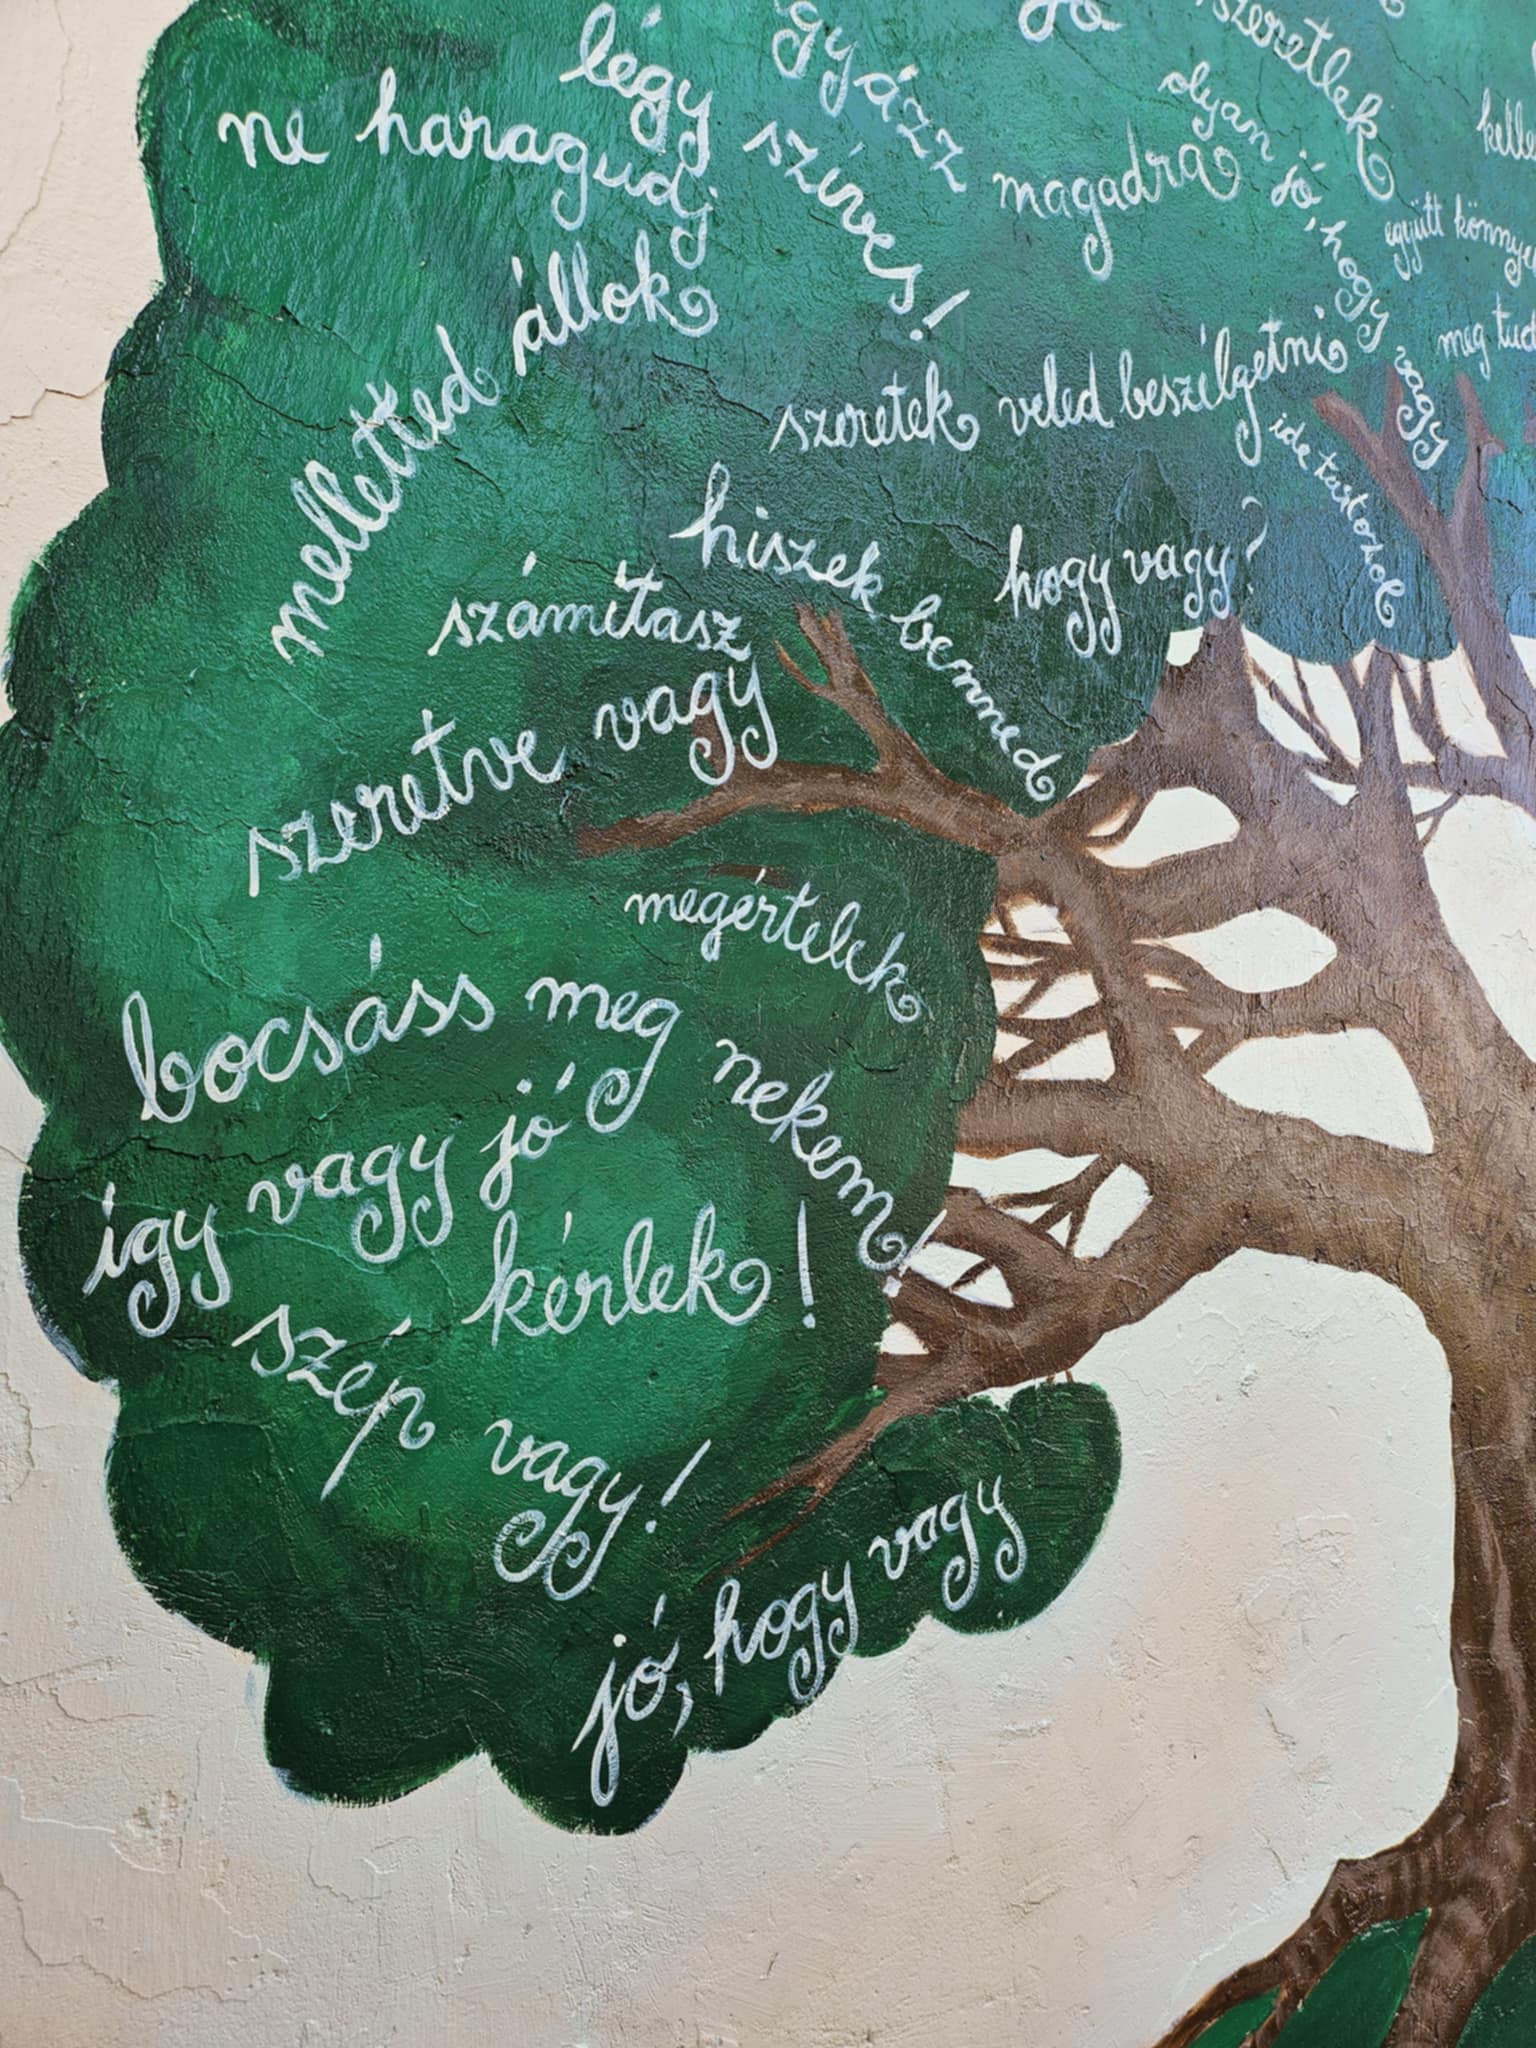 légy szíves!
ne haragudj
magadra
szeretlek
olyan jó, hogy vagy
együtt
meg
melletted állok
szeretek veled beszélgetni
ide tartozol
hiszek benned
hogy vagy?
számítasz
szeretve vagy
megértelek
bocsáss meg nekem!
így vagy jó
kérlek!
szép vagy!
jó, hogy vagy